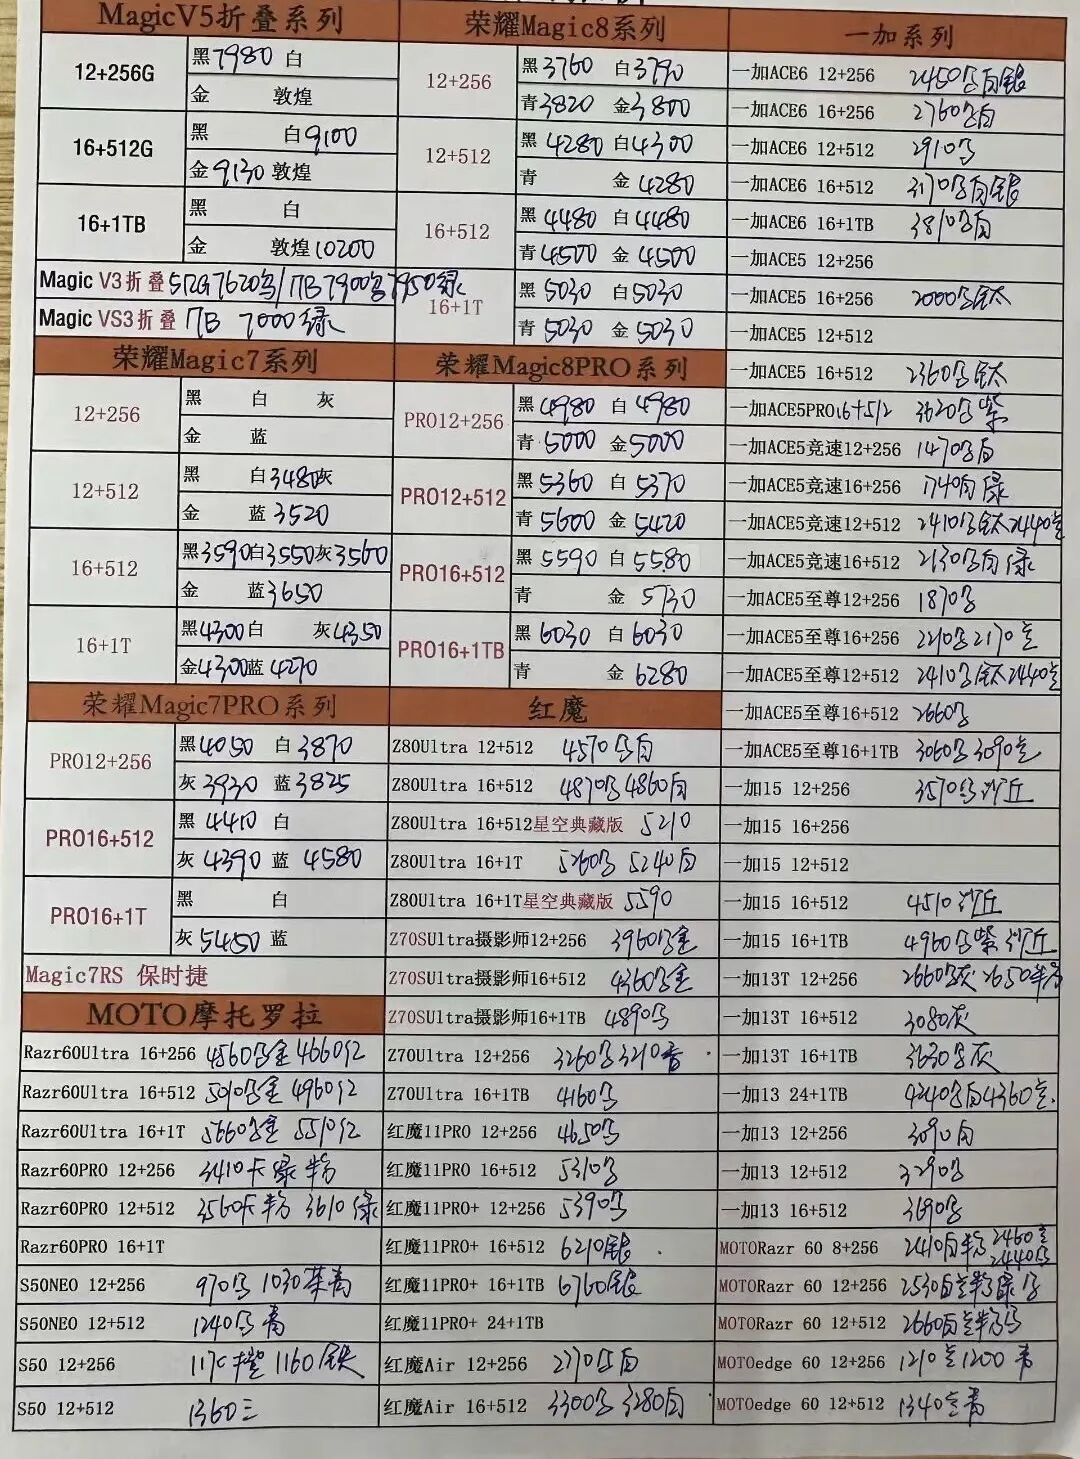 MagicV5折叠系列
12+256G 黑7980 白
金 敦煌
16+512G 黑 白9100
金9130 敦煌
16+1TB 黑 白
金 敦煌10200
Magic V3折叠512G7620 1TB7900 7950绿
Magic VS3折叠 1TB 7000绿
荣耀Magic7系列
12+256 黑 白 灰
金 蓝
12+512 黑 白3480灰
金 蓝3520
16+512 黑3590白3550灰3560
金 蓝3650
16+1T 黑4300白 灰4350
金4300蓝4270
荣耀Magic7PRO系列
PRO12+256 黑4050 白3870
灰3930 蓝3825
PRO16+512 黑4410 白
灰4390 蓝4580
PRO16+1T 黑 白
灰5450 蓝
Magic7RS 保时捷
MOTO摩托罗拉
Razr60Ultra 16+256 4560 金 4660红
Razr60Ultra 16+512 金 4960红
Razr60Ultra 16+1T 5660 金 5510红
Razr60PRO 12+256 3410卡 绿 粉
Razr60PRO 12+512 3560卡 粉 3610绿
Razr60PRO 16+1T
S50NEO 12+256 970 1030 青
S50NEO 12+512 1240 青
S50 12+256 1160
S50 12+512 1360三
荣耀Magic8系列
12+256 黑3760 白3790
青3820 金3800
12+512 黑4280 白4300
青 金4280
16+512 黑4480 白4480
青4500 金4500
16+1T 黑5030 白5030
青5030 金5030
荣耀Magic8PRO系列
PRO12+256 黑4980 白4980
青5000 金5000
PRO12+512 黑5360 白5370
青5600 金5420
PRO16+512 黑5590 白5580
青 金5730
PRO16+1TB 黑6030 白6030
青 金6280
红魔
Z80Ultra 12+512 4570 白
Z80Ultra 16+512 4870 4860白
Z80Ultra 16+512星空典藏版 5210
Z80Ultra 16+1T 5260 5240白
Z80Ultra 16+1T星空典藏版 5590
Z70SUltra摄影师12+256 3960 金
Z70SUltra摄影师16+512 4360 金
Z70SUltra摄影师16+1TB 4890
Z70Ultra 12+256 3260 3210
Z70Ultra 16+1TB 4160
红魔11PRO 12+256 4650
红魔11PRO 16+512 5310
红魔11PRO+ 12+256 5390
红魔11PRO+ 16+512 6210银
红魔11PRO+ 16+1TB 6760银
红魔11PRO+ 24+1TB
红魔Air 12+256 2770 白
红魔Air 16+512 3300 3280白
一加系列
一加ACE6 12+256 2450 白银
一加ACE6 16+256 2760 白
一加ACE6 12+512 2910
一加ACE6 16+512 3170 白银
一加ACE6 16+1TB 3810 白
一加ACE5 12+256
一加ACE5 16+256 2000 钛
一加ACE5 12+512
一加ACE5 16+512 2360 钛
一加ACE5PRO16+512 3620 紫
一加ACE5竞速12+256 1470 白
一加ACE5竞速16+256 1740白 绿
一加ACE5竞速12+512 2410 钛 2440
一加ACE5竞速16+512 2130 白 绿
一加ACE5至尊12+256 1870
一加ACE5至尊16+256 2170
一加ACE5至尊12+512 2410 钛 2440
一加ACE5至尊16+512 2660
一加ACE5至尊16+1TB 3060 3090
一加15 12+256 3570 沙丘
一加15 16+256
一加15 12+512
一加15 16+512 4510 沙丘
一加15 16+1TB 4960 紫 沙丘
一加13T 12+256 2660 灰 2650粉
一加13T 16+512 3080灰
一加13T 16+1TB 3630 灰
一加13 24+1TB 4240 白4360
一加13 12+256 3090白
一加13 12+512 3290
一加13 16+512 3690
MOTORazr 60 8+256 2410白粉 2460
2440
MOTORazr 60 12+256 2530白 粉绿
MOTORazr 60 12+512 2660白 粉
MOTOedge 60 12+256 1210 1200 青
MOTOedge 60 12+512 1340 青